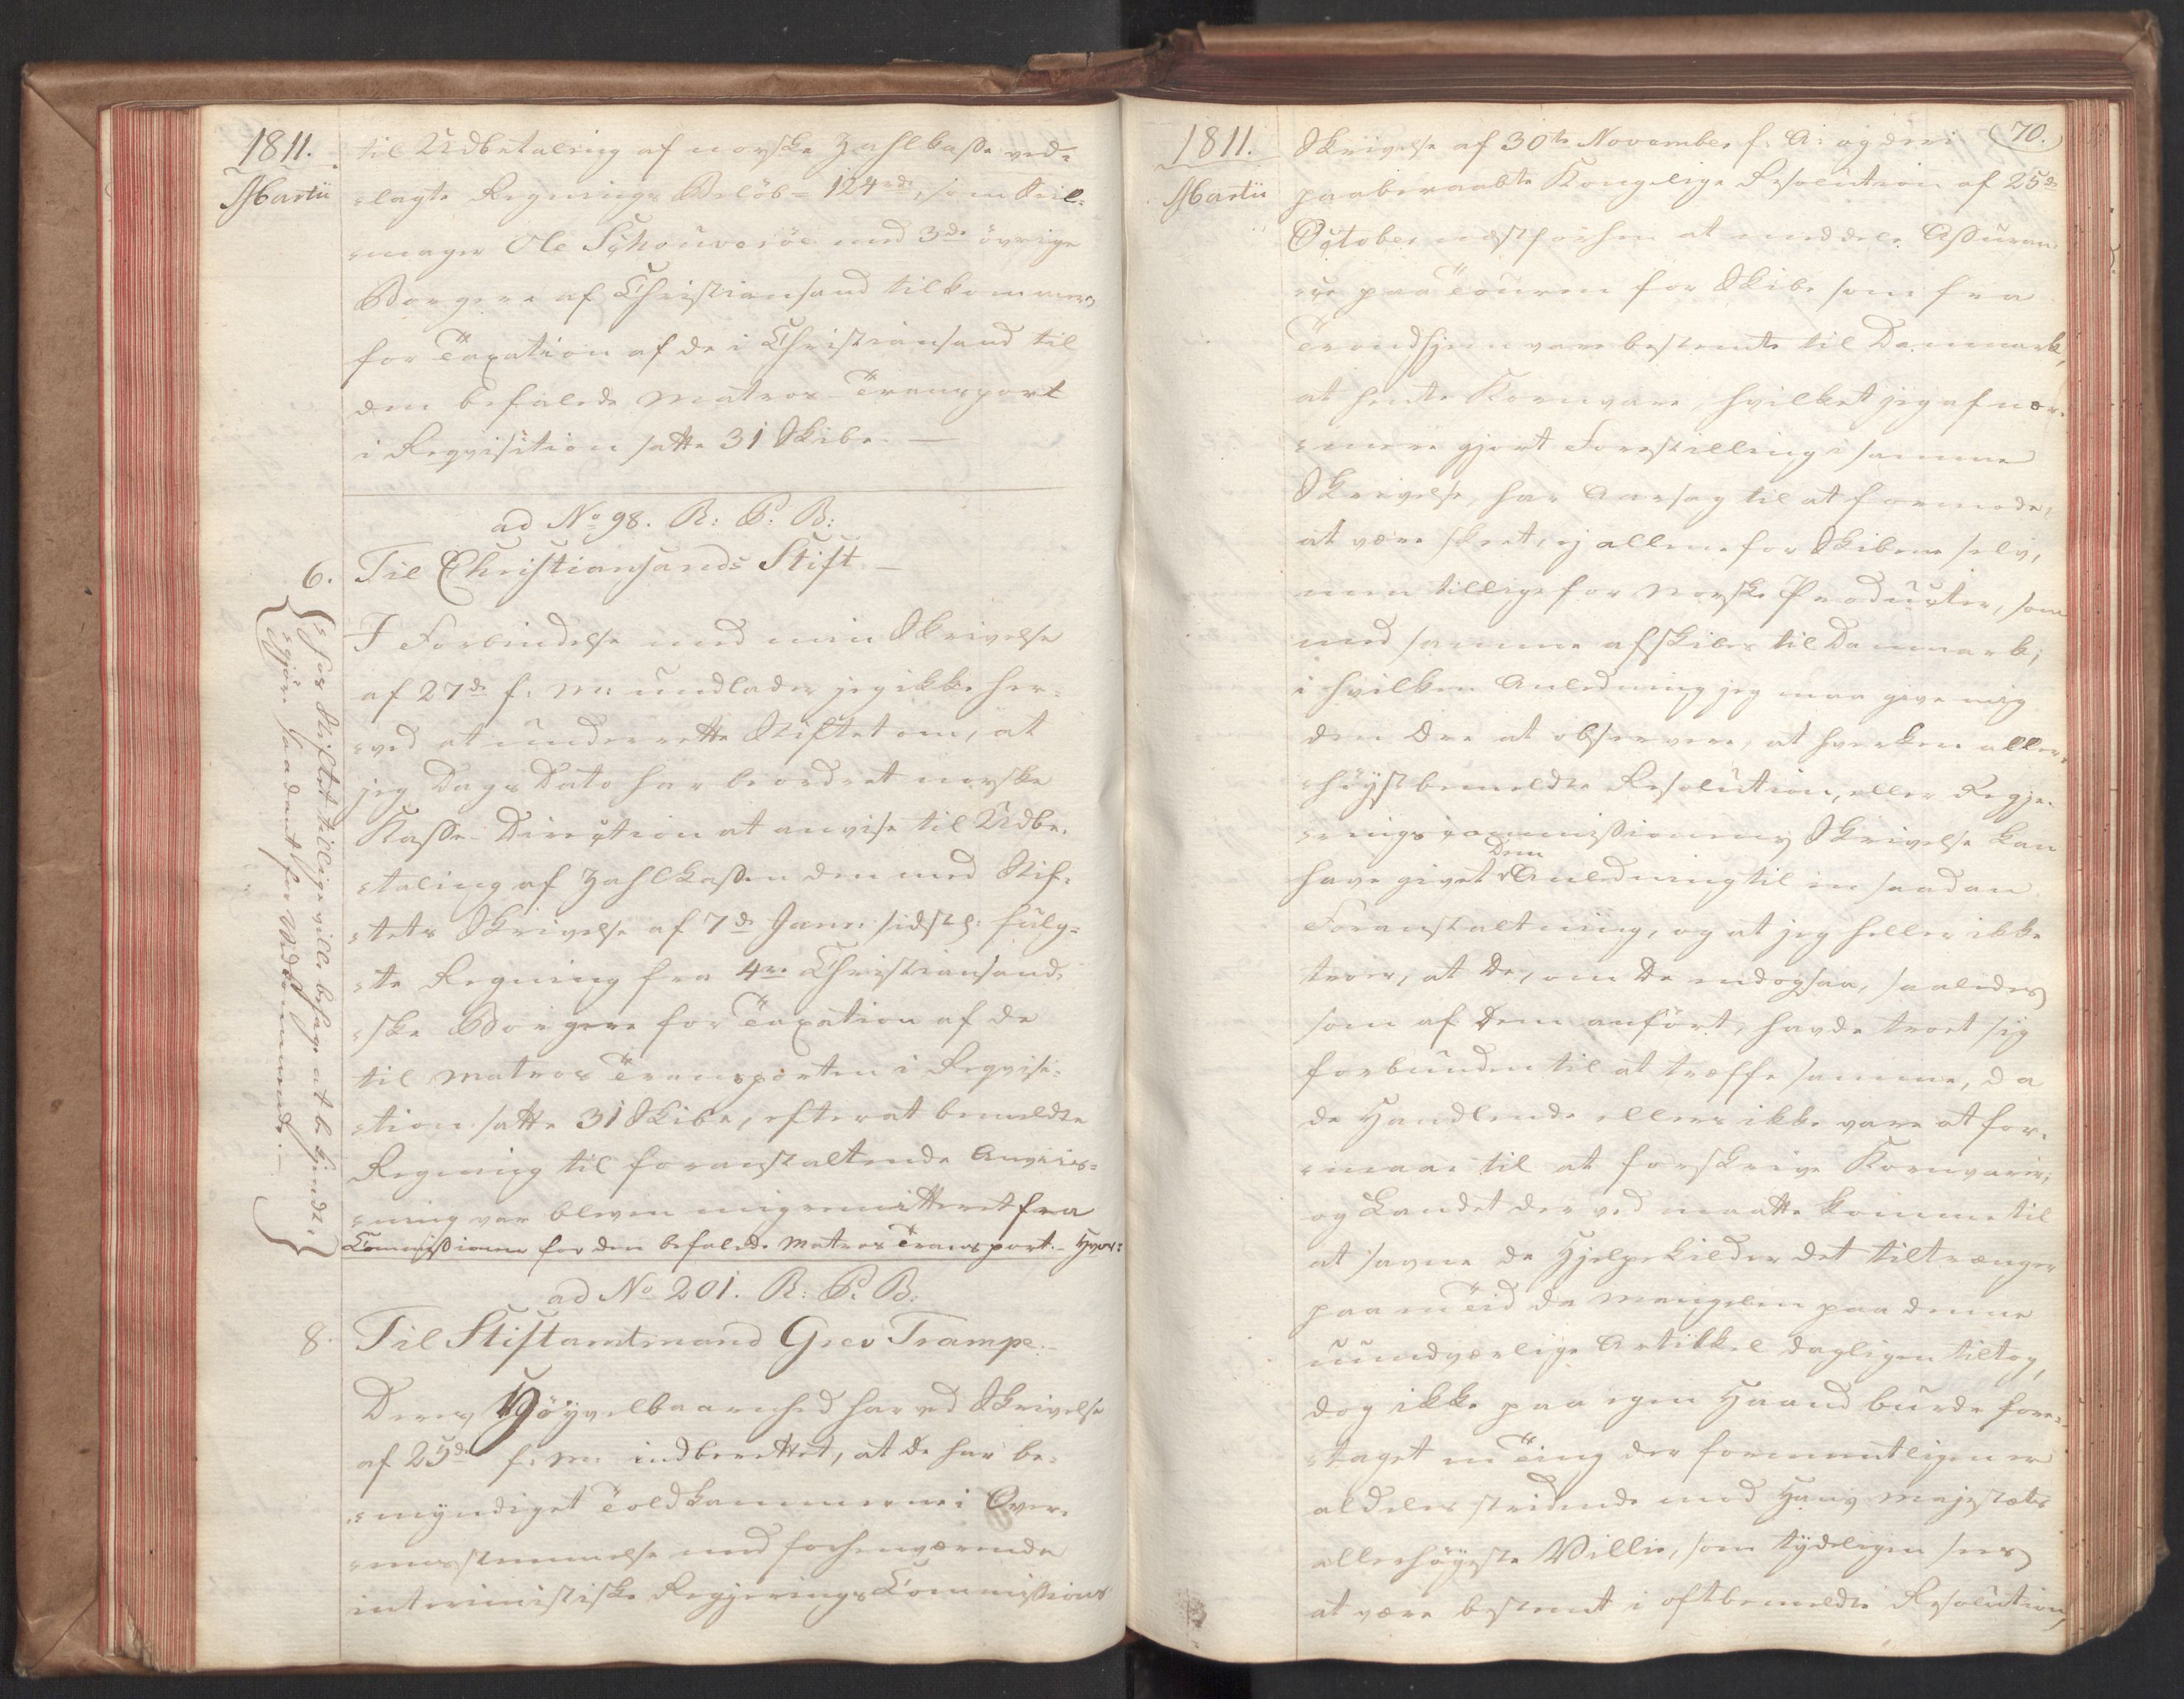 1811.
Martii
til Udbetaling af norske Zahlkasse ved-
-lagte Regnings Beløb = 124 rd, som Seil-
-mager Ole Schouverøe med 3de øvrige
Borgere af Christiansand tilkommer,
for Taxation af de i Christiansand til
den befalede Matros-Transport
i Reqvisition satte 31 Skibe. —
ad No 98. R: C: B:
6. Til Christiansands Stift —
I Forbindelse med min Skrivelse
af 27de f: M: undlader jeg ikke her-
-ved at underrette Stiftet om, at
jeg Dags Dato har beordret norske
Kasse-Direction at anvise til Udbe-
-taling af Zahlkassen den med Stif-
-tets Skrivelse af 7de Janr: sidstl: fulg-
-te Regning fra 4re Christiansand-
-ske Borgere for Taxation af de
til Matros Transporten i Reqvisi-
-tion satte 31 Skibe, efterat bemeldte
Regning til foranstaltende Anviis-
-ning var bleven mig remitteret fra
Commissionen for den befalede Matros Transport. - Hvor-
-for Stiftet tillige ville behage at bekjendt-
-gjøre saadant for Vedkommende. —
ad No 201. R: C: B:
8. Til Stiftamtmand Grev Trampe. -
Deres Høyvelbaarenhed har ved Skrivelse
af 25de f: M: indberettet, at De har be-
-myndiget Toldkammerne i Over-
-eensstemmelse med forhenværende
interimistiske Regjerings Commissions
1811.
Martii
(70.)
Skrivelse af 30te November f: A: og den i
paaberaabte Kongelige Resolution af 25de
October næstforhen at meddele Assuran-
-ce paa Touren for Skibe som fra
Trondhjem vare bestemte til Danmark,
at hente Kornvare, hvilket jeg af nær-
-mere gjort Forestilling i samme
Skrivelse, har Aarsag til at formode,
at være skeet, ej allene for Skibene selv,
men tillige for norske Producter, som
med samme afskibes til Danmark;
i hvilken Anledning jeg maa give mig
den Ære at observere, at hverken aller-
-høyst bemeldte Resolution, eller Regje-
-ringscommissionens Skrivelse kan
have givet Dem Anledning til en saadan
Foranstaltning, og at jeg heller ikke
troer, at De, om De endogsaa, saaledes
som af Dem anført, havde troet sig
forbunden til at træffe samme, da
de Handlende ellers ikke vare at for-
-maae til at forskrive Kornvarer,
og Landet derved maatte komme til
at savne de Hjelpekilder det tiltrænger
paa en Tid da Mangelen paa denne
uundværlige Artikkel dagligen tiltog,
dog ikke paa egen Haand burde fore-
-taget en Ting der formentligen er
aldeles stridende med Hans Majestæts
allerhøyeste Villie, som tydeligen sees
at være bestemt i oftbemeldte Resolution,